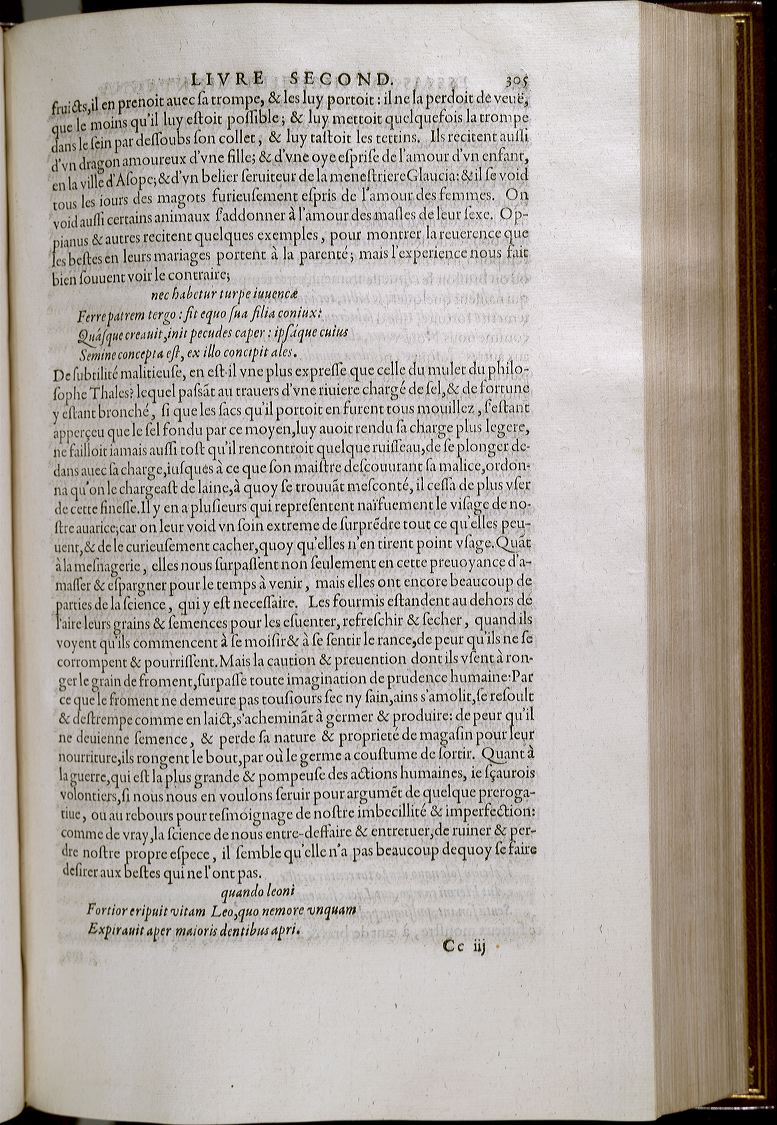 LIVRE SECOND. 305
fruicts,il en prenoit auec ſa trompe, & les luy portoit : il ne la perdoit de veuë,
que le moins qu'il luy eſtoit poſſible ; & luy mettoit quelquefois la trompe
dans le ſein par deſſoubs ſon collet, & luy taſtoit les tettins. Ils recitent auſſi
d'vn dragon amoureux d'vne fille; & d'vne oye eſpriſe de l'amour d'vn enfant,
en la ville d'Aſope; & d'vn belier ſeruiteur de la meneſtriere Glaucia: & il ſe void
tous les iours des magots furieuſement eſpris de l'amour des femmes. On
void auſſi certains animaux ſ'addonner à l'amour des maſles de leur ſexe. Op-
pianus & autres recitent quelques exemples, pour montrer la reuerence que
les beſtes en leurs mariages portent à la parenté; mais l'experience nous fait
bien ſouuent voir le contraire;
nec habetur turpe iuuencæ
Ferre patrem tergo : fit equo ſua filia coniux:
Quáſque creauit,init pecudes caper : ipſáque cuius
Semine concepta eſt, ex illo concipit ales.
De ſubtilité malitieuſe, en eſt-il vne plus expreſſe que celle du mulet du philo-
ſophe Thales? lequel paſsãt au trauers d'vne riuiere chargé de ſel,& de fortune
y eſtant bronché, ſi que les ſacs qu'il portoit en furent tous mouillez, ſ'eſtant
apperçeu que le ſel fondu par ce moyen,luy auoit rendu ſa charge plus legere,
ne failloit iamais auſſi toſt qu'il rencontroit quelque ruiſſeau,de ſe plonger de-
dans auec ſa charge,iuſques à ce que ſon maiſtre deſcouurant ſa malice,ordon-
na qu'on le chargeaſt de laine,à quoy ſe trouuãt meſconté, il ceſſa de plus vſer
de cette fineſſe.Il y en a pluſieurs qui repreſentent naïfuement le viſage de no-
ſtre auarice;car on leur void vn ſoin extreme de ſurprẽdre tout ce qu'elles peu-
uent,& de le curieuſement cacher,quoy qu'elles n'en tirent point vſage. Quãt
à la meſnagerie, elles nous ſurpaſſent non ſeulement en cette preuoyance d'a-
maſſer & eſpargner pour le temps à venir, mais elles ont encore beaucoup de
parties de la ſcience, qui y eſt neceſſaire. Les fourmis eſtandent au dehors de
l'aire leurs grains & ſemences pour les eſuenter, refreſchir & ſecher, quand ils
voyent qu'ils commencent à ſe moiſir & à ſe ſentir le rance,de peur qu'ils ne ſe
corrompent & pourriſſent. Mais la caution & preuention dont ils vſent à ron-
ger le grain de froment,ſurpaſſe toute imagination de prudence humaine. Par
ce que le froment ne demeure pas touſiours ſec ny ſain,ains s'amolit,ſe reſoult
& deſtrempe comme en laict,s'acheminãt à germer & produire: de peur qu'il
ne deuienne ſemence, & perde ſa nature & proprieté de magaſin pour leur
nourriture,ils rongent le bout,par où le germe a couſtume de ſortir. Quant à
la guerre,qui eſt la plus grande & pompeuſe des actions humaines, ie ſçaurois
volontiers,ſi nous nous en voulons ſeruir pour argumẽt de quelque preroga-
tiue, ou au rebours pour teſmoignage de noſtre imbecillité & imperfection:
comme de vray,la ſcience de nous entre-deffaire & entretuer,de ruiner & per-
dre noſtre propre eſpece, il ſemble qu'elle n'a pas beaucoup dequoy ſe faire
deſirer aux beſtes qui ne l'ont pas.
quando leoni
Fortior eripuit vitam Leo,quo nemore vnquam
Expirauit aper maioris dentibus apri.
Cc iij